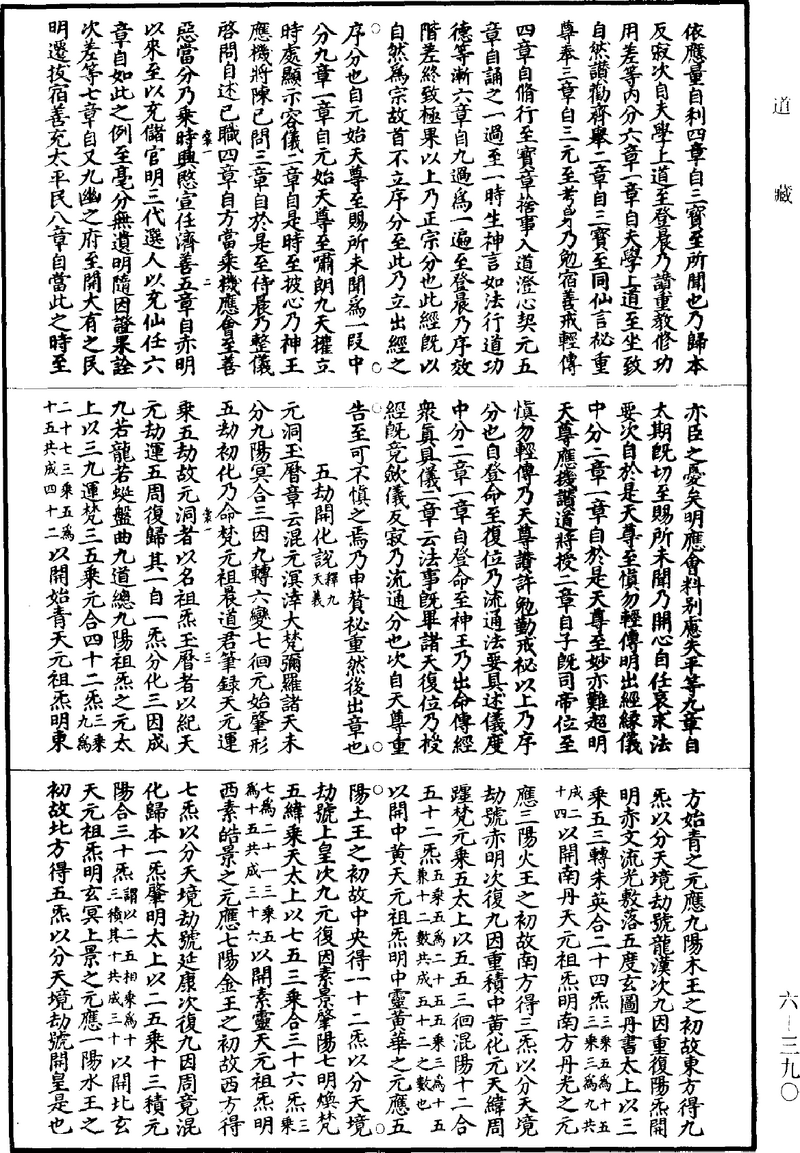 道藏
六-三九〇
依應量自利四章自三寶至所聞也乃歸本
反寂次自夫學上道至登晨乃讚重教修功
用差等內分六章一章自夫學上道至坐致
自然讚勸齊舉二章自三寶至同仙言祕重
尊奉三章自三元至考身乃勉宿善戒輕傳
四章自脩行至寶章捨事入道澄心契元五
章自誦之一過至一時生神言如法行道功
德等漸六章自九過為一遍至登晨乃序效
階差終致極果以上乃正宗分也此經既以
自然為宗故首不立序分至此乃立出經之
序分也自元始天尊至賜所未聞為一段中
分九章一章自元始天尊至嘯朗九天權立
時處顯示容儀二章自是時至披心乃神王
應機將陳已問三章自於是至侍晨乃整儀
啓問自述已職四章自方當乘機應會至善
惡當分乃乘時興愍宣任濟善五章自亦明
以來至以充儲官明三代選人以充仙任六
章自如此之例至毫分無遺明隨因證果詮
次差等七章自又九幽之府至開大有之民
明遷拔宿善充太平民八章自當此之時至
亦臣之憂矣明應會料別慮失平等九章自
太期既切至賜所未聞乃開心自任哀求法
要次自於是天尊至慎勿輕傳明出經緣儀
中分二章一章自於是天尊至妙亦難超明
天尊應機諧道將授二章自子既司帝位至
慎勿輕傳乃天尊讚許勉勤戒祕以上乃序
分也自登命至復位乃流通法要具述儀度
中分二章一章自登命至神王乃出命傳經
衆真具儀二章云法事既畢諸天復位乃授
經既竟斂儀反寂乃流通分也次自天尊重
告至可不慎之焉乃申贊祕重然後出章也
五劫開化說釋九天義
元洞玉曆章云混元溟涬大梵彌羅諸天未
分九陽冥合三因九轉六變七徊元始肇形
五劫初化乃命梵元祖晨道君筆録天元運
乘五劫故元洞者以名祖炁玉曆者以紀天
元劫運五周復歸其一自一炁分化三因成
九若龍若蜒盤曲九道總九陽祖炁之元太
上以三九運梵三五乘元合四十二炁三乘九為
二十七三乘五為十五共成四十二以開始青天元祖炁明東
方始青之元應九陽木王之初故東方得九
炁以分天境劫號龍漢次九因重復陽炁開
明赤文流光敷落五度玄圖丹書太上以三
乘五三轉朱英合二十四炁三乘五為十五三乘三為九共
成二十四以開南丹天元祖炁明南方丹光之元
應三陽火王之初故南方得三炁以分天境
劫號赤明次復九因重積中黃化元天緯周
躔梵元乘五太上以五五三徊混陽十二合
五十二炁五乘五為二十五五乘三為十五兼十二數共成五十二之數也
以開中黃天元祖炁明中靈黃華之元應五
陽土王之初故中央得一十二炁以分天境
劫號上皇次九元復因素景肇陽七明煥梵
五緯乘天太上以七五三乘合三十六炁三乘
七為二十一三乘五為十五共成三十六以開素靈天元祖炁明
西素皓景之元應七陽金王之初故西方得
七炁以分天境劫號延康次復九因周竟混
化歸本一炁肇明太上以二五乘十三積元
陽合三十炁謂以二五相乘為十三積其十共成三十以開北玄
天元祖炁明玄冥上景之元應一陽水王之
初故北方得五炁以分天境劫號開皇是也